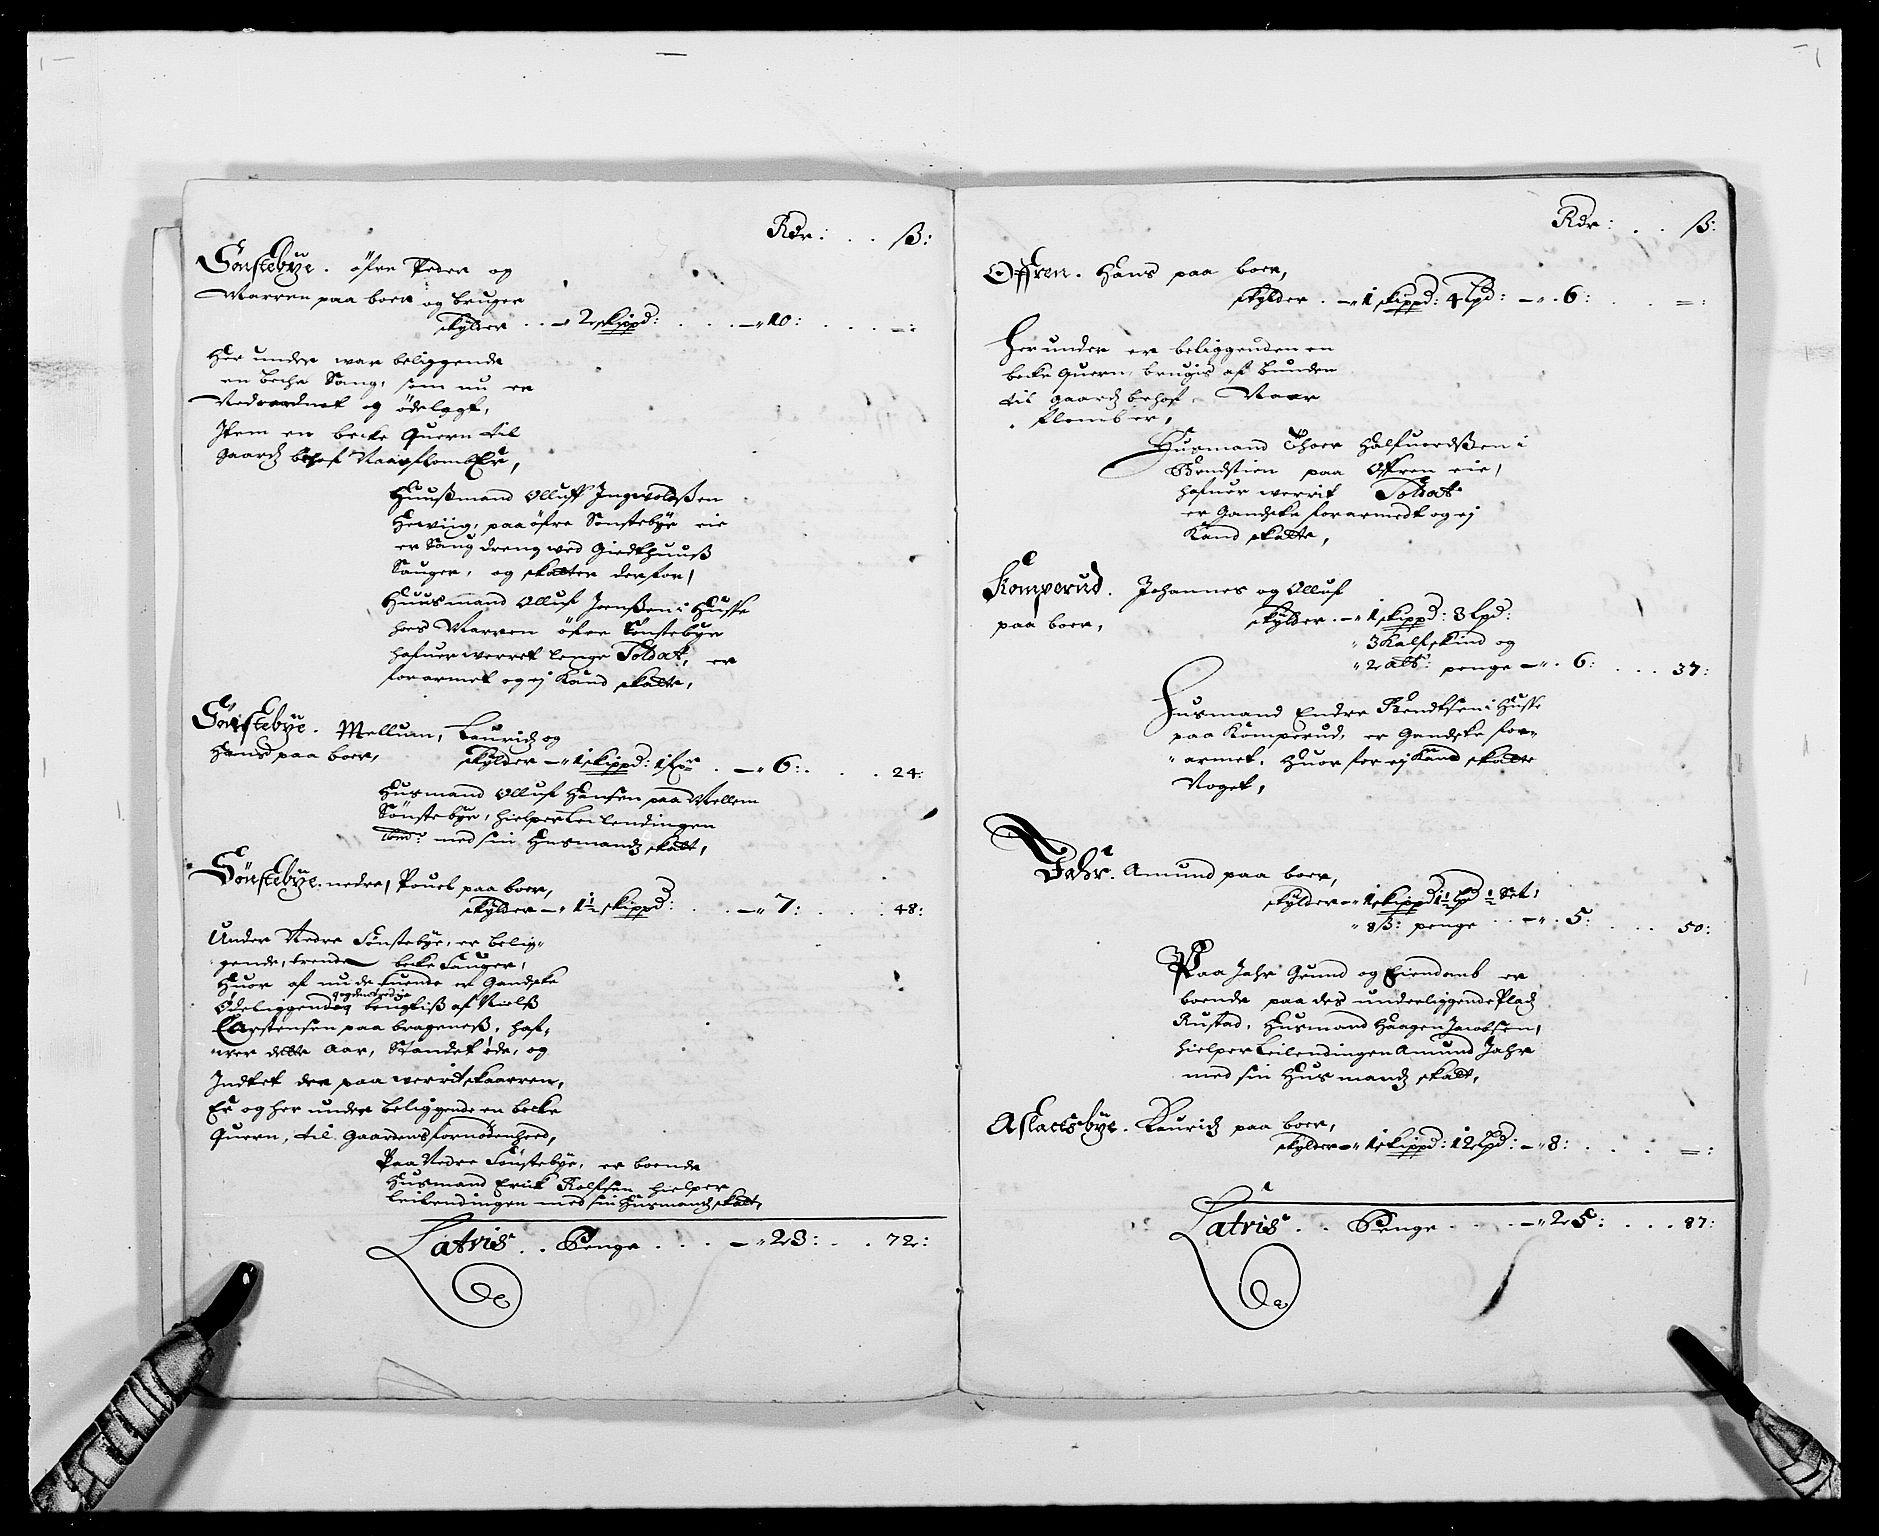 Rdr: . . ß:
Sønstebye. öfre Peder og
Marren paa boer og bruger
skylder . . – 2 skippd: . . . – 10: . . . . –:
Her under war beliggende
en becke Saug, som nu er
Nedraadnet og ödelagt,
Item en becke Quern til
gaardz behof Naar flomb Er,
Huußmand Olluff Ingwoldßen
Herviig, paa öfre Sønstebye eie
er Saug dreng wed Giedthuuß
Sauger, og skatter derfor,
Huusmand Olluf Joenßen i Huße
hoes Marren öfre Sønstebye
hafuer werret lenge Soldat, er
forarmet og ej Kand skatte,
Sønstebye. Mellum, Lauridz og
Hans paa boer,
skylder – 1 skippd: 1 fr . – 6: . . . 24:
Husmand Olluf Hansen paa Mellem
Sönstebye, hielper Leilendingen
med sin Husmandz skatt,
Sönstebye. nedre, Pouel paa boer,
skylder – 1½ skippd: . . – 7: . . . 48:
Under Nedre Sönstebye, er belig-
gende, trende becke Sauger,
Huor af nu de tuende er Gandske
Ödeliggende og den tredie brugtiß af Nielß
Carstensen paa brageneß, haf-
wer dette Aar, Standet öde, og
Indtet der paa werrit skaarren,
Er og her under beliggende en becke
Quern, til Gaardens fornödenhed,
Paa Nedre Sönstebye, er boende
Husmand Erick Rolfsen hielper
leilendingen med sin Husmandz skatt,
Latris . . Penge . . . – 23: . . 72:
Rdr: . . ß:
Offren. Hans paa boer,
skylder . – 1 skippd: 4 lpd: – . 6: . . . =:
Her under er beliggenden en
becke Quern, brugis af bunden
til gaardz behof, Naar
flomb er,
Husmand Thoer Halfuordßen i
paa Offren eie,
hafuer werrit Soldat
er Gandske forarmedt og ej
Kand skatte,
Komperud. Johannes og Olluf
paa boer,
skylder – 1 skippd: 3 lpd:
3 Kalfskind og
2 alb: penge – . 6: . . . 37:
Husmand Endre Bendtsen i Huße
paa Komperud, er Gandske for-
armet, Huor for ej Kand skatte
Noget,
Jahr. Amund paa boer,
skylder – 1 skippd 1½ lpd ½ Set:
8 ß: penge . . – . 5: . . . 50:
Paa Jahr Grund og Eiendomb er
boende paa des underliggende Pladz
Rustad, Husmand Haagen Jacobsen,
hielper Leilendingen Amund Jahr
med sin Husmandz skatt,
Aslacksbye. Lauridz paa boer,
skylder – 1 skippd: 12 lpd: – 8: . . . =:
Latris . . Penge . . . – 25: . . . 87: